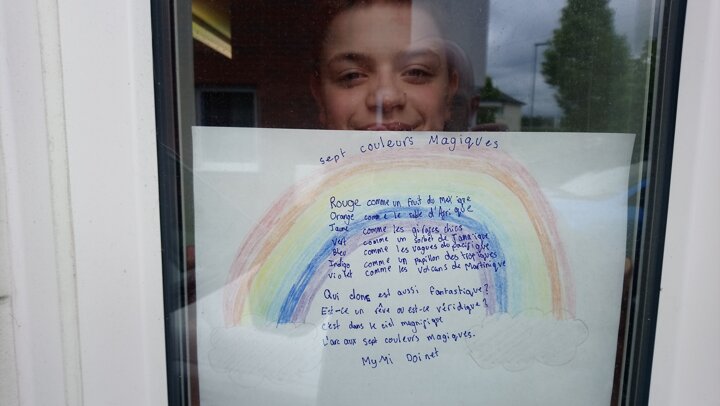 sept couleurs Magiques
Rouge comme un fruit du mexique
Orange comme le sable d'Afrique
Jaune comme les girafes chics
Vert comme un sorbet de Jamaique
Bleu comme les vagues du pacifique
Indigo comme un papillon des tropiques
Violet comme les volcans de Martinique
Qui donc est aussi fantastique?
Est-ce un rêve ou est-ce véridique?
c'est dans le ciel magnifique
L'arc aux sept couleurs magiques.
MyMi Doinet